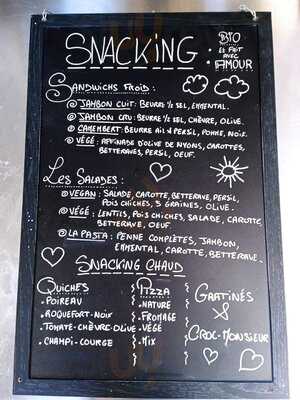 SNACKING :
BIO
ET FAIT
AVEC
AMOUR
SANDWICHS FROID :
JAMBON CUIT : BEURRE ½ SEL, EMMENTAL.
JAMBON CRU : BEURRE ½ SEL, CHÈVRE, OLIVE.
CAMEMBERT : BEURRE AIL & PERSIL, POMME, NOIX.
VÉGÉ : AFFINADE D'OLIVE DE NYONS, CAROTTES,
BETTERAVES, PERSIL, OEUF.
LES SALADES :
VEGAN : SALADE, CAROTTE, BETTERAVE, PERSIL,
POIS CHICHES, 3 GRAINES, OLIVE.
VÉGÉ : LENTILS, POIS CHICHES, SALADE, CAROTTE,
BETTERAVE, OEUF.
LA PASTA : PENNE COMPLÈTES, JAMBON,
EMMENTAL, CAROTTE, BETTERAVE.
SNACKING CHAUD
QUICHES
. POIREAU
. ROQUEFORT-NOIX
. TOMATE-CHÈVRE-OLIVE
. CHAMPI-COURGE
PIZZA
. NATURE
. FROMAGE
. VÉGÉ
. MIX
GRATINÉS
&
CROC-MONSIEUR